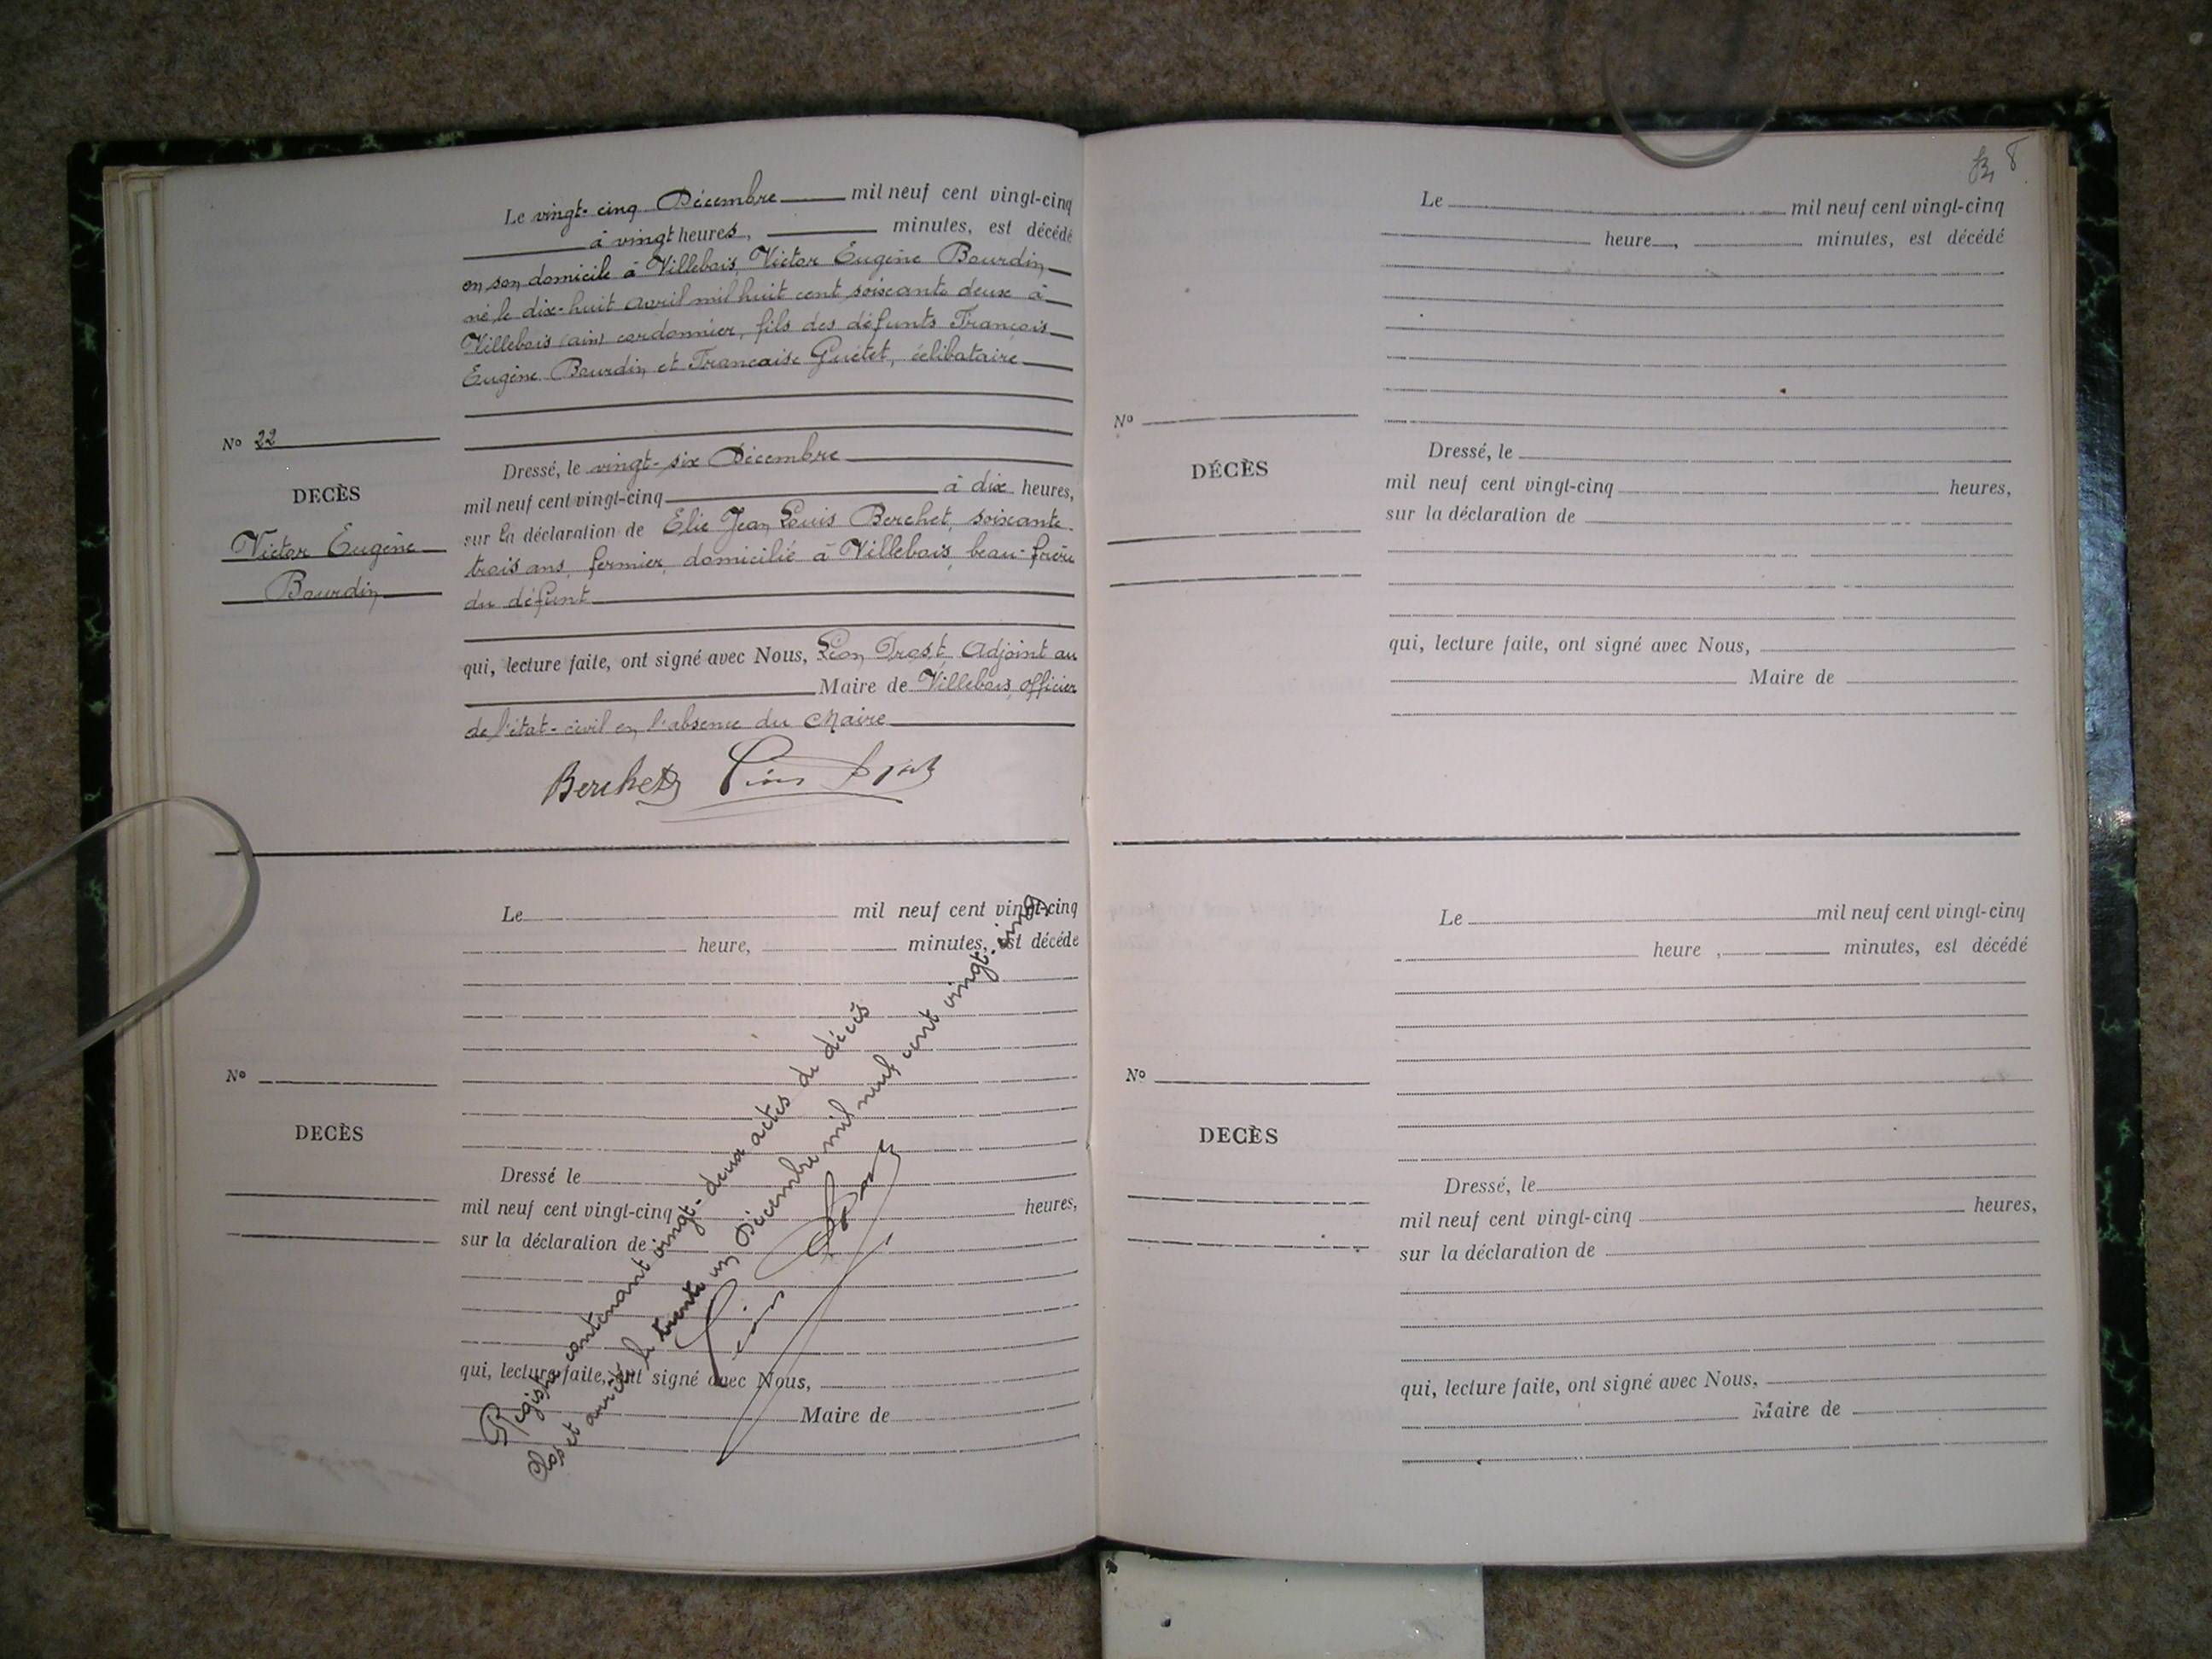 Le vingt-cinq Décembre mil neuf cent vingt-cinq
à vingt heures, minutes, est décédé
en son domicile à Villebois, Victor Eugène Bourdin
né le dix-huit avril mil huit cent soixante deux à
Villebois (ain) cordonnier, fils des défunts François
Eugène Bourdin et Francoise Guétet, célibataire
No 22
DECÈS
Victor Eugène
Bourdin
Dressé, le vingt-six Décembre
mil neuf cent vingt-cinq à dix heures,
sur la déclaration de Elie Jean Louis Berchet, soixante
trois ans, fermier, domicilié à Villebois, beau-frère
du défunt
qui, lecture faite, ont signé avec Nous, Léon Drost, Adjoint au
Maire de Villebois, officier
de l'état-civil en l'absence du Maire
Berchet Léon Drost
Le mil neuf cent vingt-cinq
heure, minutes, est décédé
No
DECÈS
Dressé le
mil neuf cent vingt-cinq heures,
sur la déclaration de
qui, lecture faite, ont signé avec Nous,
Maire de
Registre contenant vingt-deux actes de décès
Clos et arrêté le trente un Décembre mil neuf cent vingt-cinq
Léon Drost
8
Le mil neuf cent vingt-cinq
heure , minutes, est décédé
No
DÉCÈS
Dressé, le
mil neuf cent vingt-cinq heures,
sur la déclaration de
qui, lecture faite, ont signé avec Nous,
Maire de
Le mil neuf cent vingt-cinq
heure , minutes, est décédé
No
DECÈS
Dressé, le
mil neuf cent vingt-cinq heures,
sur la déclaration de
qui, lecture faite, ont signé avec Nous,
Maire de